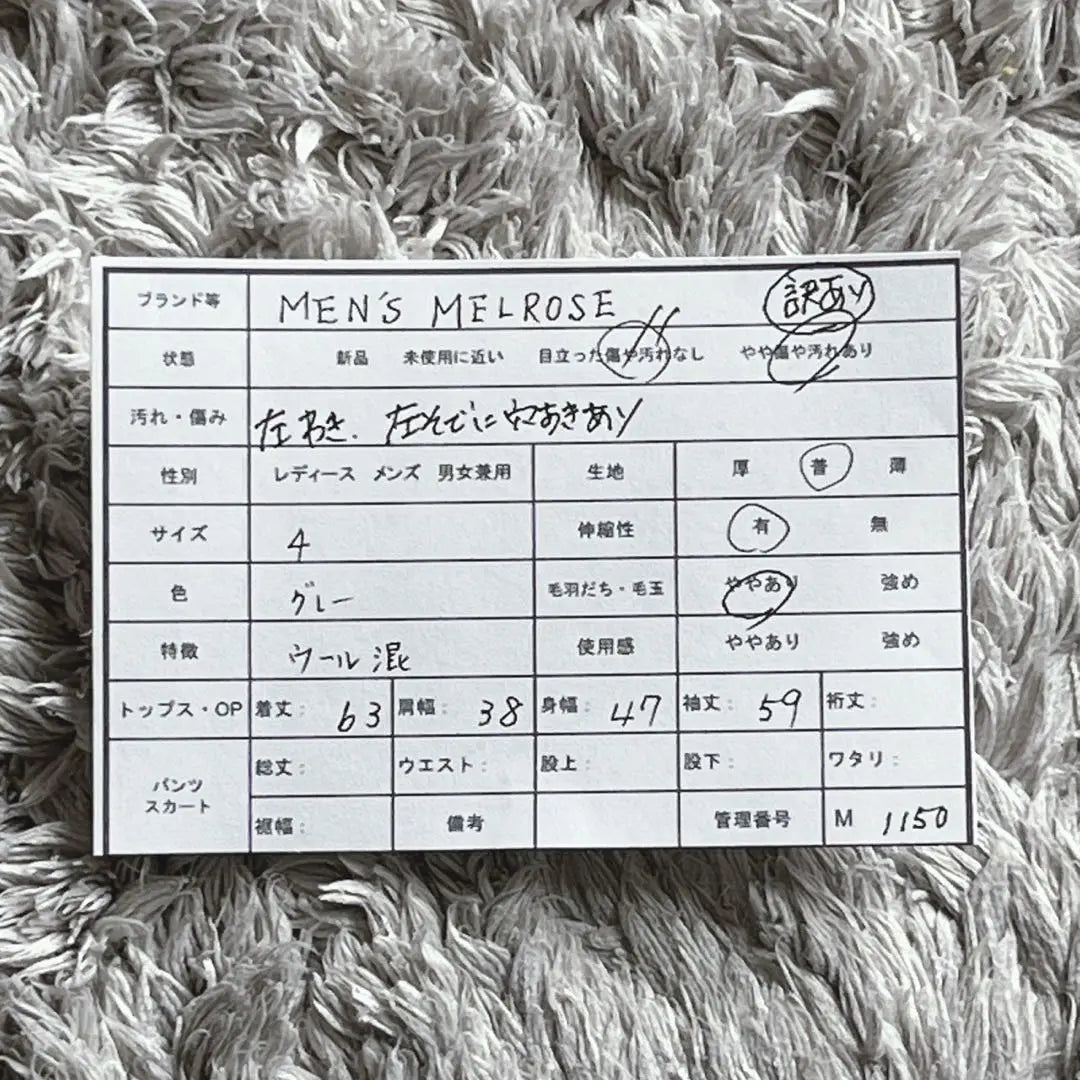 ブランド等 MEN'S MELROSE 訳あり
状態 新品 未使用に近い 目立った傷や汚れなし やや傷や汚れあり
汚れ・傷み 左わき、左そでに穴あきあり
性別 レディース メンズ 男女兼用 生地 厚 普 薄
サイズ 4 伸縮性 有 無
色 グレー 毛羽だち・毛玉 ややあり 強め
特徴 ウール混 使用感 ややあり 強め
トップス・OP 着丈: 63 肩幅: 38 身幅: 47 袖丈: 59 裄丈:
パンツ スカート 総丈: ウエスト: 股上: 股下: ワタリ:
裾幅: 備考 管理番号 M 1150